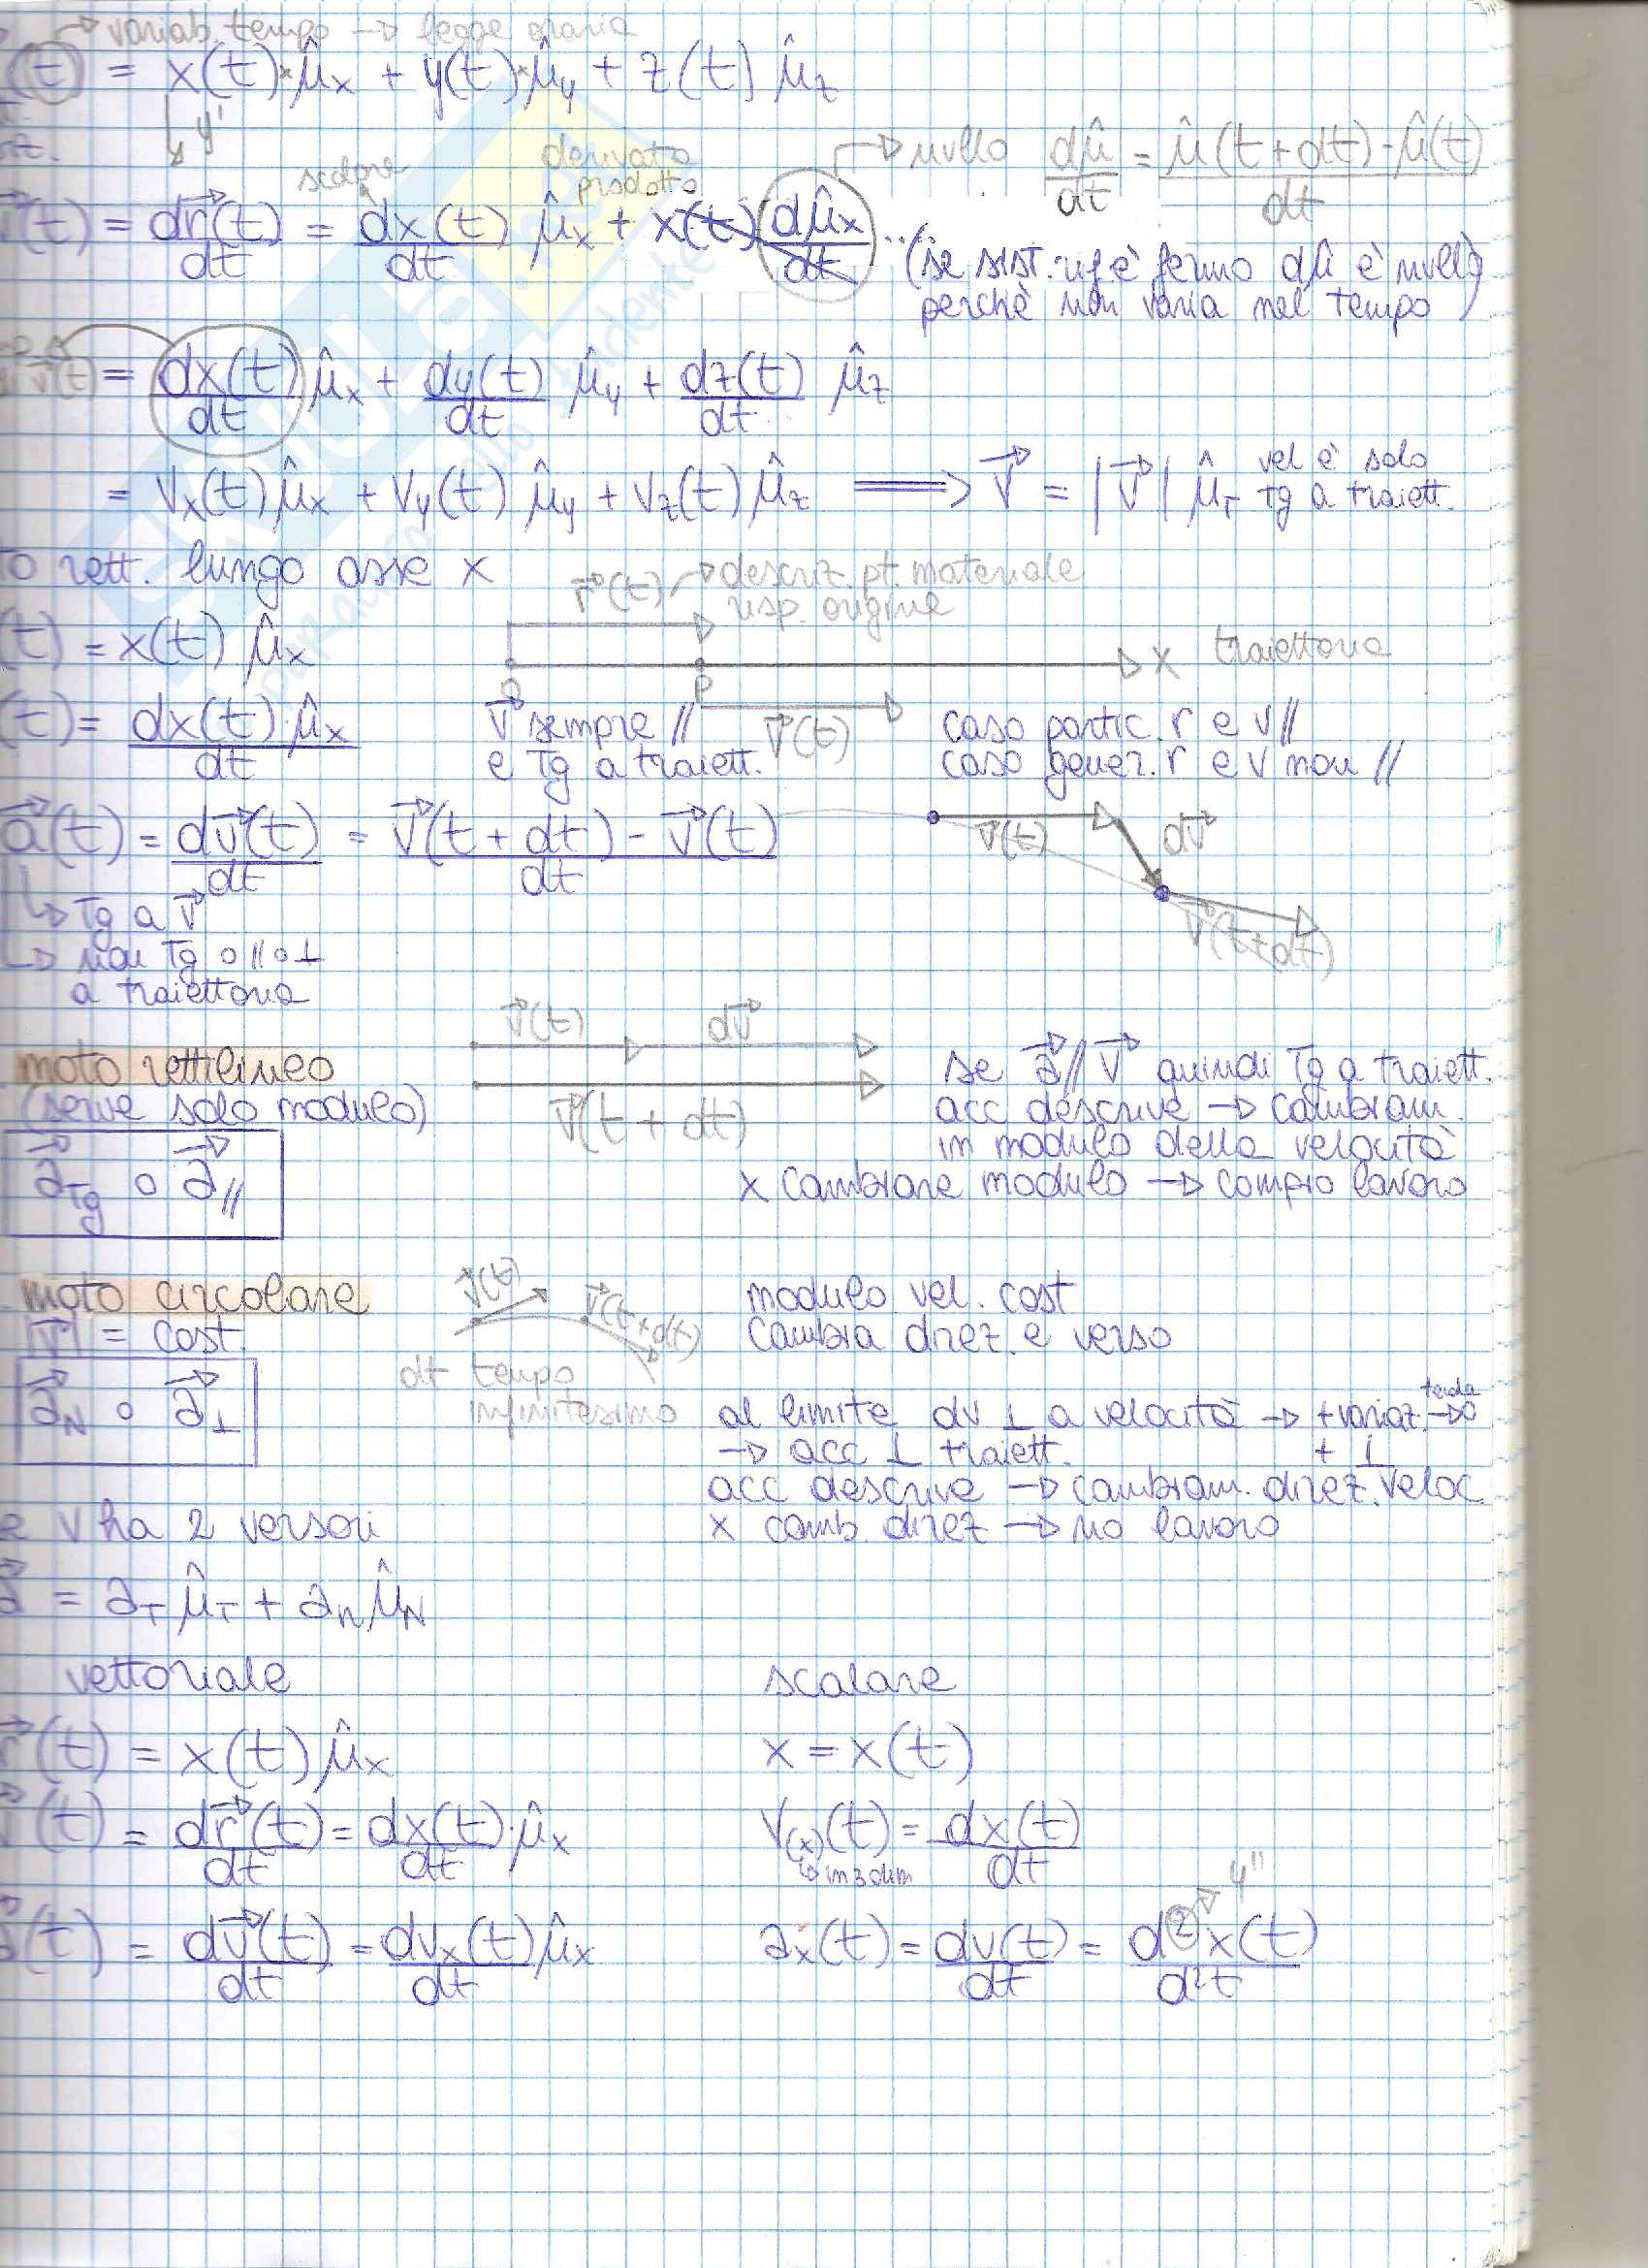 → variab. tempo → legge oraria
(t) = x(t)·μ̂x + y(t)·μ̂y + z(t) μ̂z
y'
scalare
derivata prodotto
→ nullo dμ̂/dt = μ̂(t+dt)-μ̂(t)/dt
v⃗(t) = dr⃗(t)/dt = dx(t)/dt μ̂x + x(t) dμ̂x/dt ...
(se sist. rif è fermo dμ̂ è nullo
perchè non varia nel tempo)
v⃗(t) = dx(t)/dt μ̂x + dy(t)/dt μ̂y + dz(t)/dt μ̂z
= vx(t) μ̂x + vy(t) μ̂y + vz(t) μ̂z ⟹ v⃗ = |v⃗| μ̂T vel è solo
tg a traiett.
to rett. lungo asse x
r⃗(t) → descriz. pt. materiale
risp. origine
(t) = x(t) μ̂x
O P x traiettoria
(t) = dx(t)·μ̂x/dt
v⃗ sempre //
e Tg a traiett.
v⃗(t)
caso partic. r e v //
caso gener. r e v non //
a⃗(t) = dv⃗(t)/dt = v⃗(t + dt) - v⃗(t)/dt
v⃗(t) dv⃗
v⃗(t+dt)
↳ Tg a v⃗
↳ non Tg o // o ⊥
a traiettoria
v⃗(t) dv⃗
v⃗(t + dt)
moto rettilineo
(serve solo modulo)
a⃗Tg o a⃗//
se a⃗ // v⃗ quindi Tg a traiett.
acc descrive → cambiam.
in modulo della velocità
x cambiare modulo → compio lavoro
moto circolare
|v⃗| = cost.
a⃗N o a⃗⊥
v⃗(t) v⃗(t+dt)
dt tempo
infinitesimo
modulo vel. cost
cambia direz. e verso
al limite dv ⊥ a velocità → + variaz. tenda → 0
→ acc ⊥ traiett. + ⊥
acc descrive → cambiam. direz. veloc
x camb. direz → no lavoro
e v ha 2 versori
a⃗ = aT μ̂T + aN μ̂N
vettoriale scalare
r⃗(t) = x(t) μ̂x
x = x(t)
v⃗(t) = dr⃗(t)/dt = dx(t)/dt·μ̂x
v(x)(t) = dx(t)/dt
↳ in 3 dim
a⃗(t) = dv⃗(t)/dt = dvx(t)/dt μ̂x
ax(t) = dv(t)/dt = d²x(t)/d²t
y''